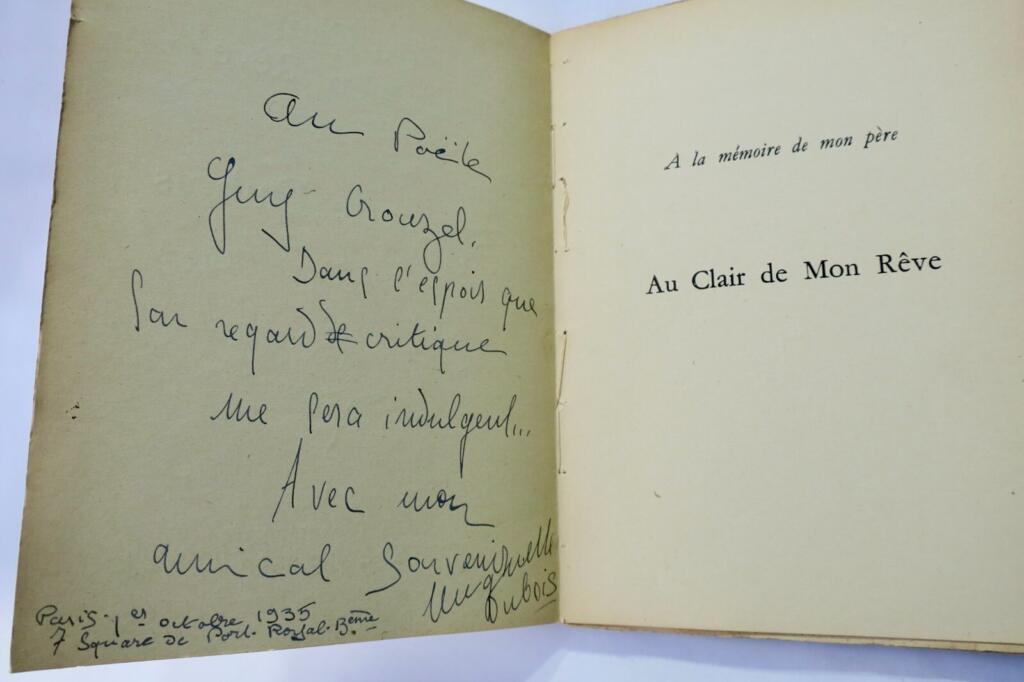 Au Poète
Guy Crouzel.
Dans l'espoir que
son regard de critique
me sera indulgent...
Avec mon
amical souvenir
Dubois
Paris - 1er octobre 1935
7 Square de Port-Royal - 13ème
A la mémoire de mon père
Au Clair de Mon Rêve